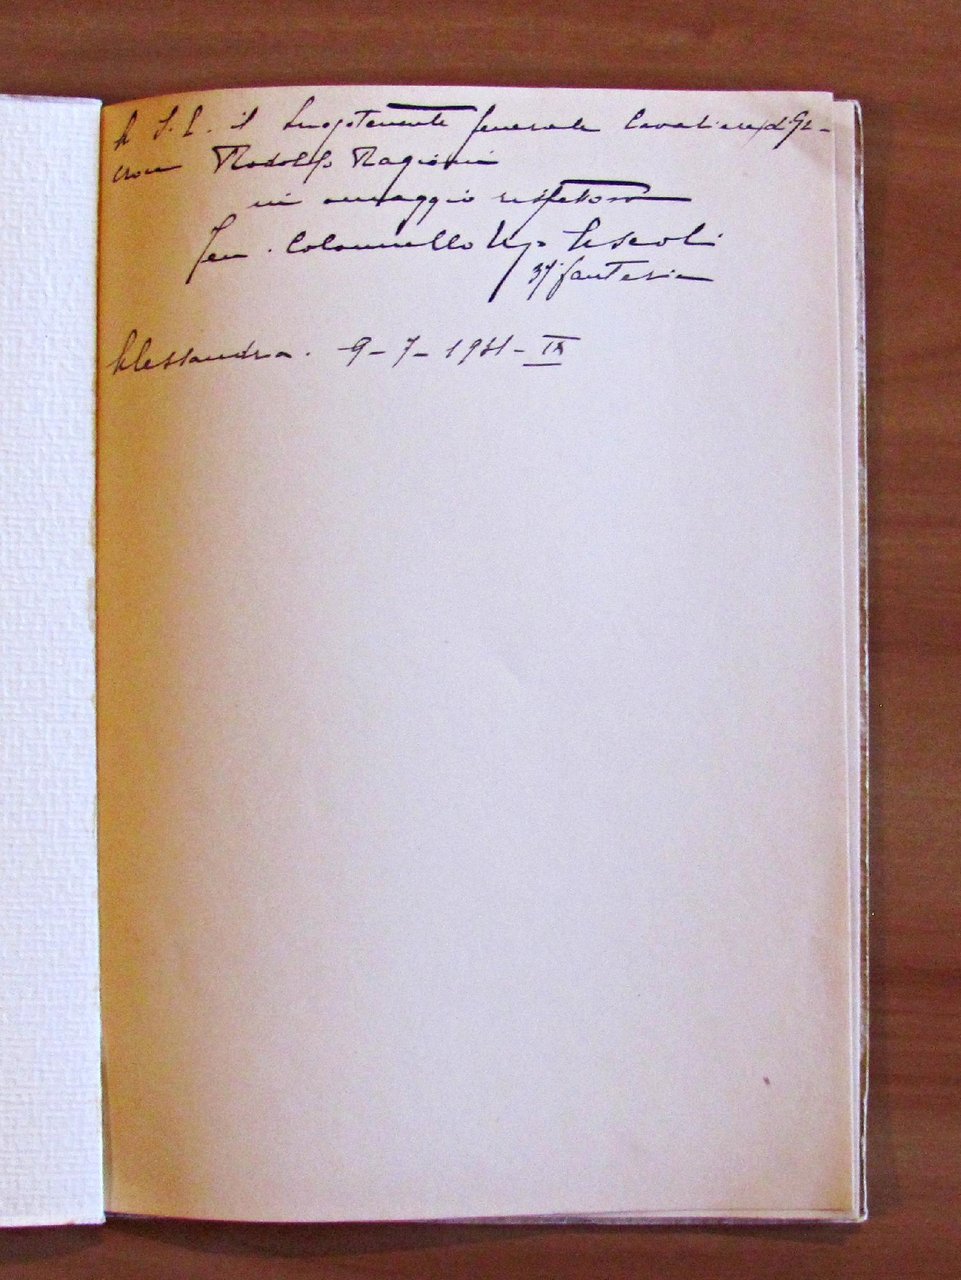 A S. E. il Luogotenente Generale Cavaliere di Gr-
croce Rodolfo Ragioni
in omaggio rispettoso
Ten. Colonnello Ugo
37 fanteria
Alessandria. 9-7-1931-IX